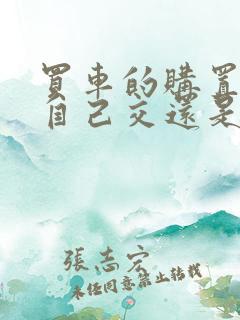 買車的購置
自己交還是
張志宏
未經同意禁止轉載